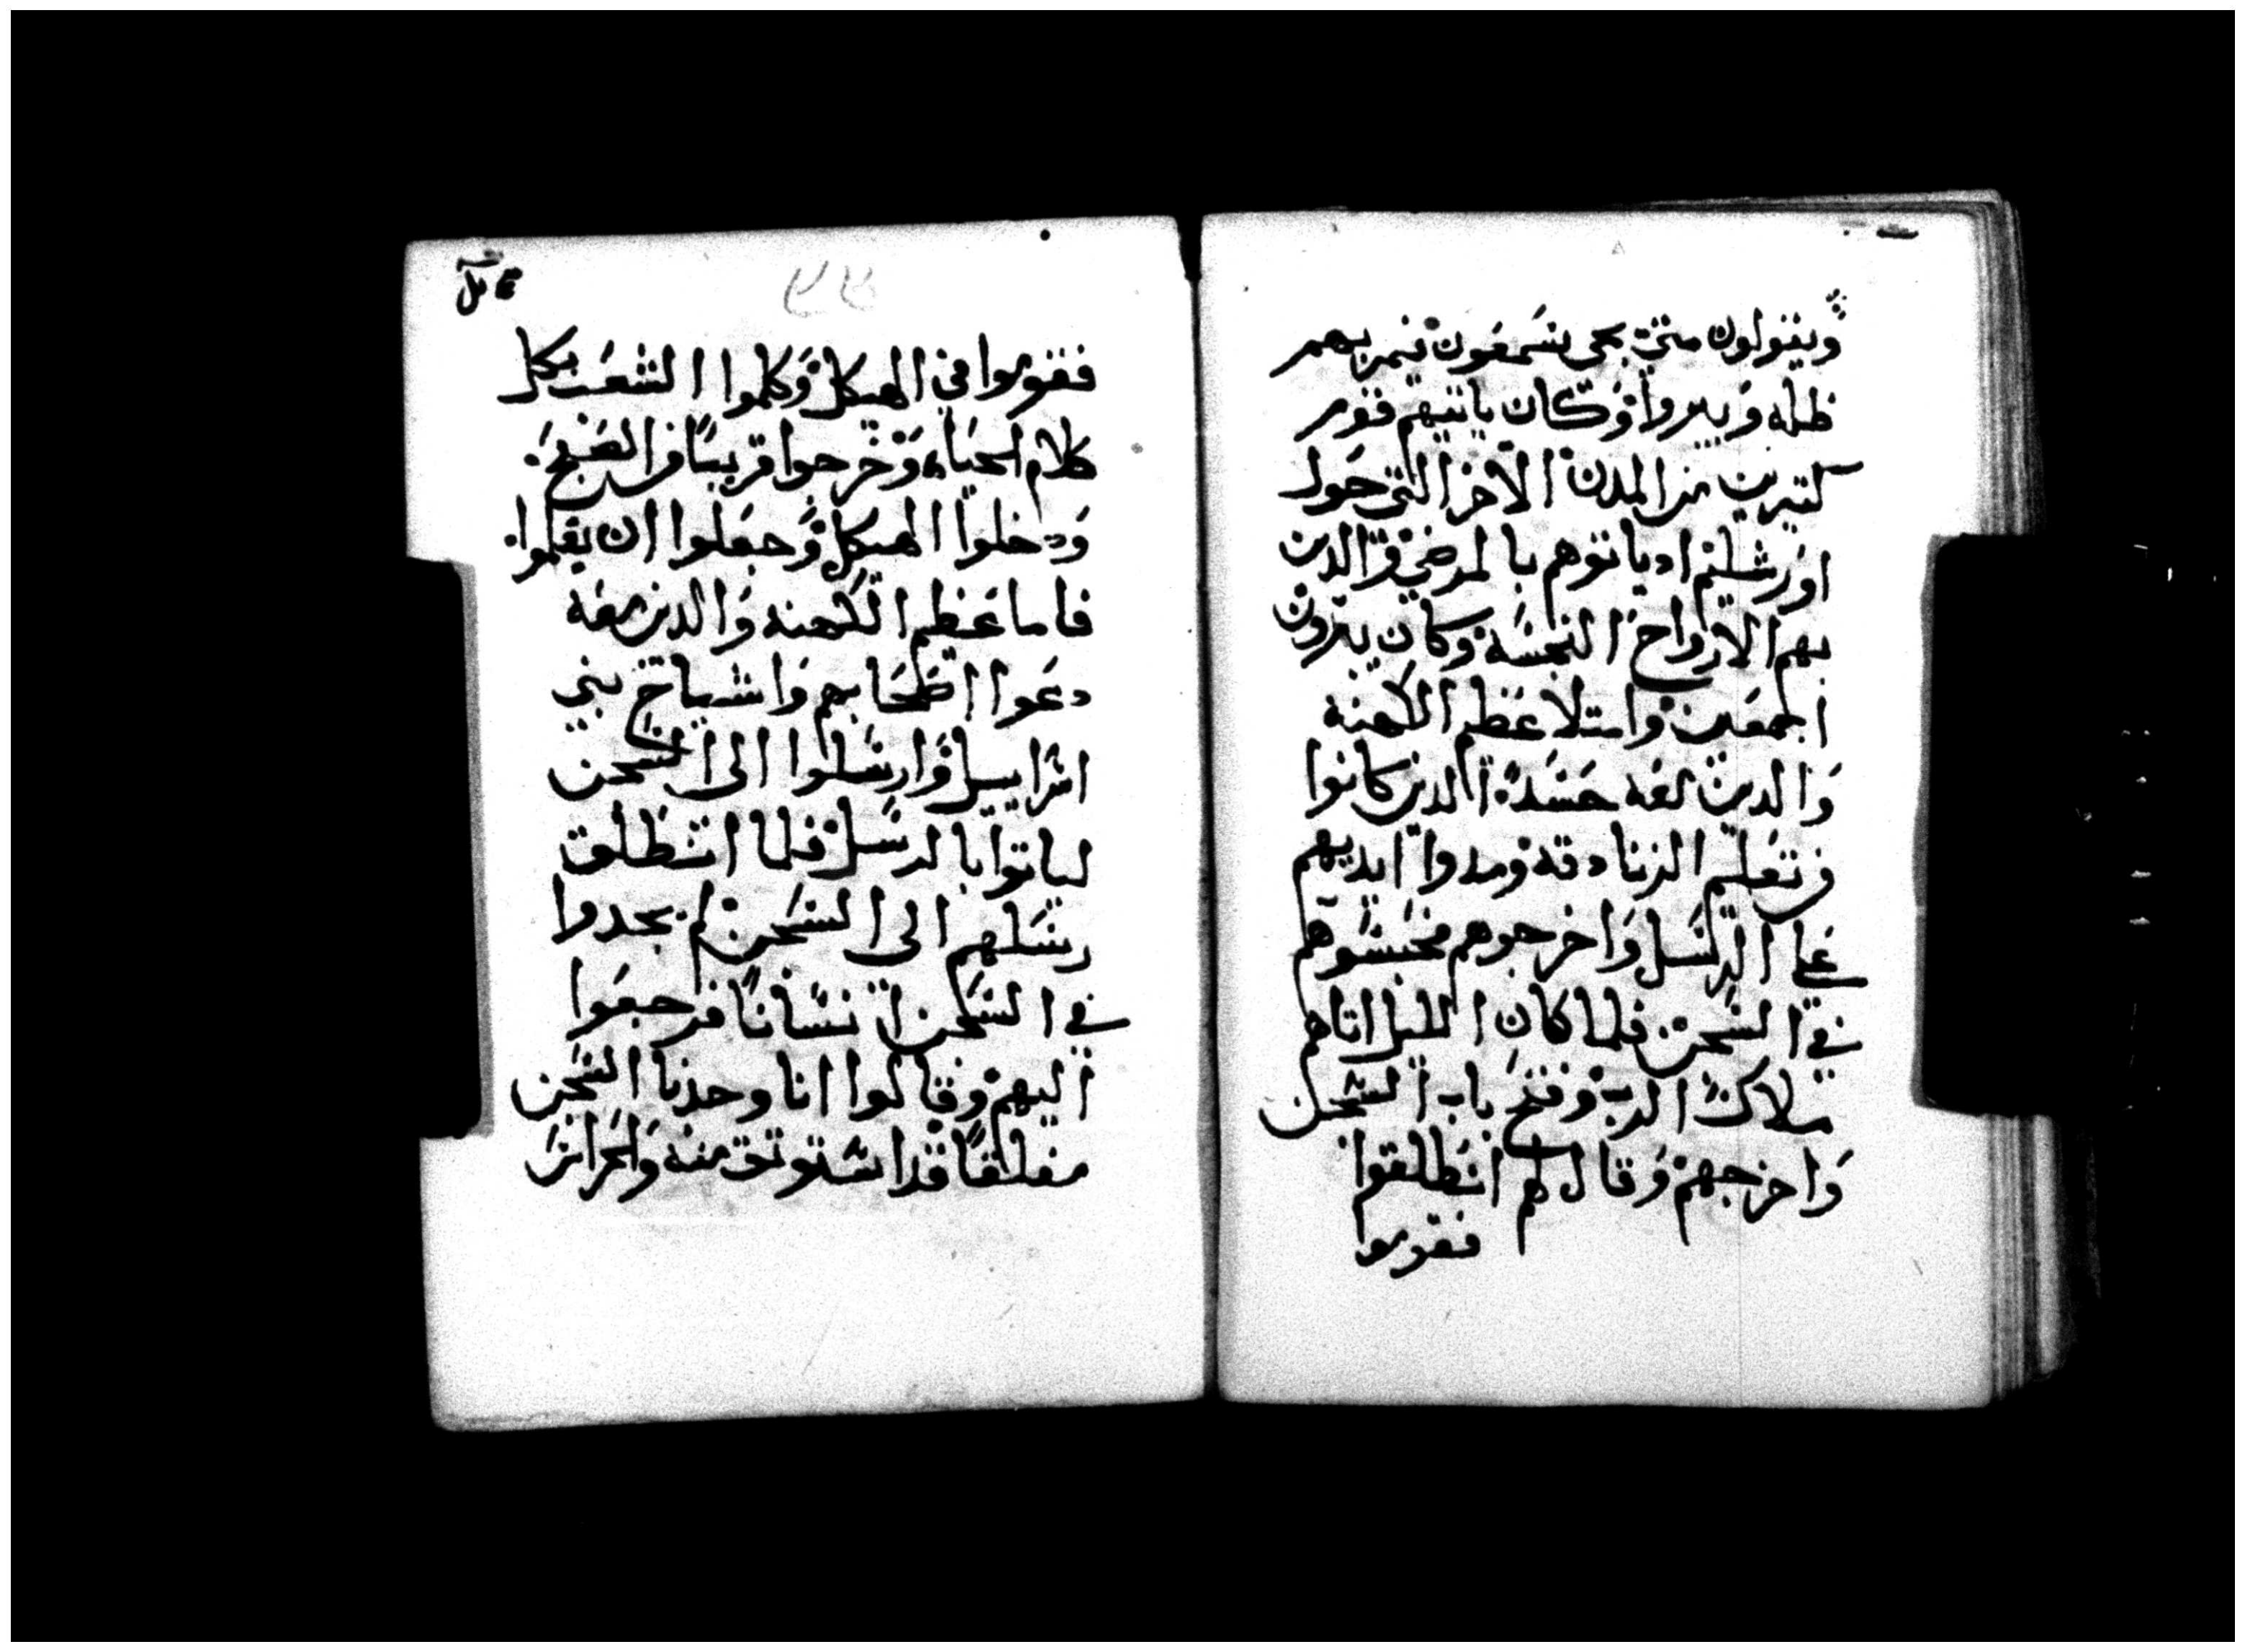 ويقولون متي يجى شمعون فيمر بهم
ظله ويبروا وكان ياتيهم قوم
كتيرين من المدن الاخر التي حول
اورشليم اد ياتوهم بالمرضي والدين
بهم الارواح النجسة وكان يبرون
اجمعين وامتلا عظم الكهنه
والدين معه حسدة الدين كانوا
من تعليم الزنادقه ومدوا ايديهم
علي الرسل واخرجوهم فحبسوهم
في السجن فلما كان الليل اتاهم
ملاك الرب وفتح باب السجن
واخرجهم وقال لهم انطلقوا
فقوموا
فقوموا في الهيكل وكلموا الشعب بكل
كلام الحياه وخرجوا قريبا من الصبح
ودخلوا الهيكل وجعلوا ان يعلموا
فاما عظيم الكهنه والدين معه
دعوا اصحابهم واشياخ بني
اسراييل وارسلوا الى السجن
لياتوا بالرسل فلما انطلق
رسلهم الى السجن لم يجدوا
في السجن انسانا فرجعوا
اليهم وقالوا انا وجدنا السجن
مغلقا قد استوتق منه والحراس